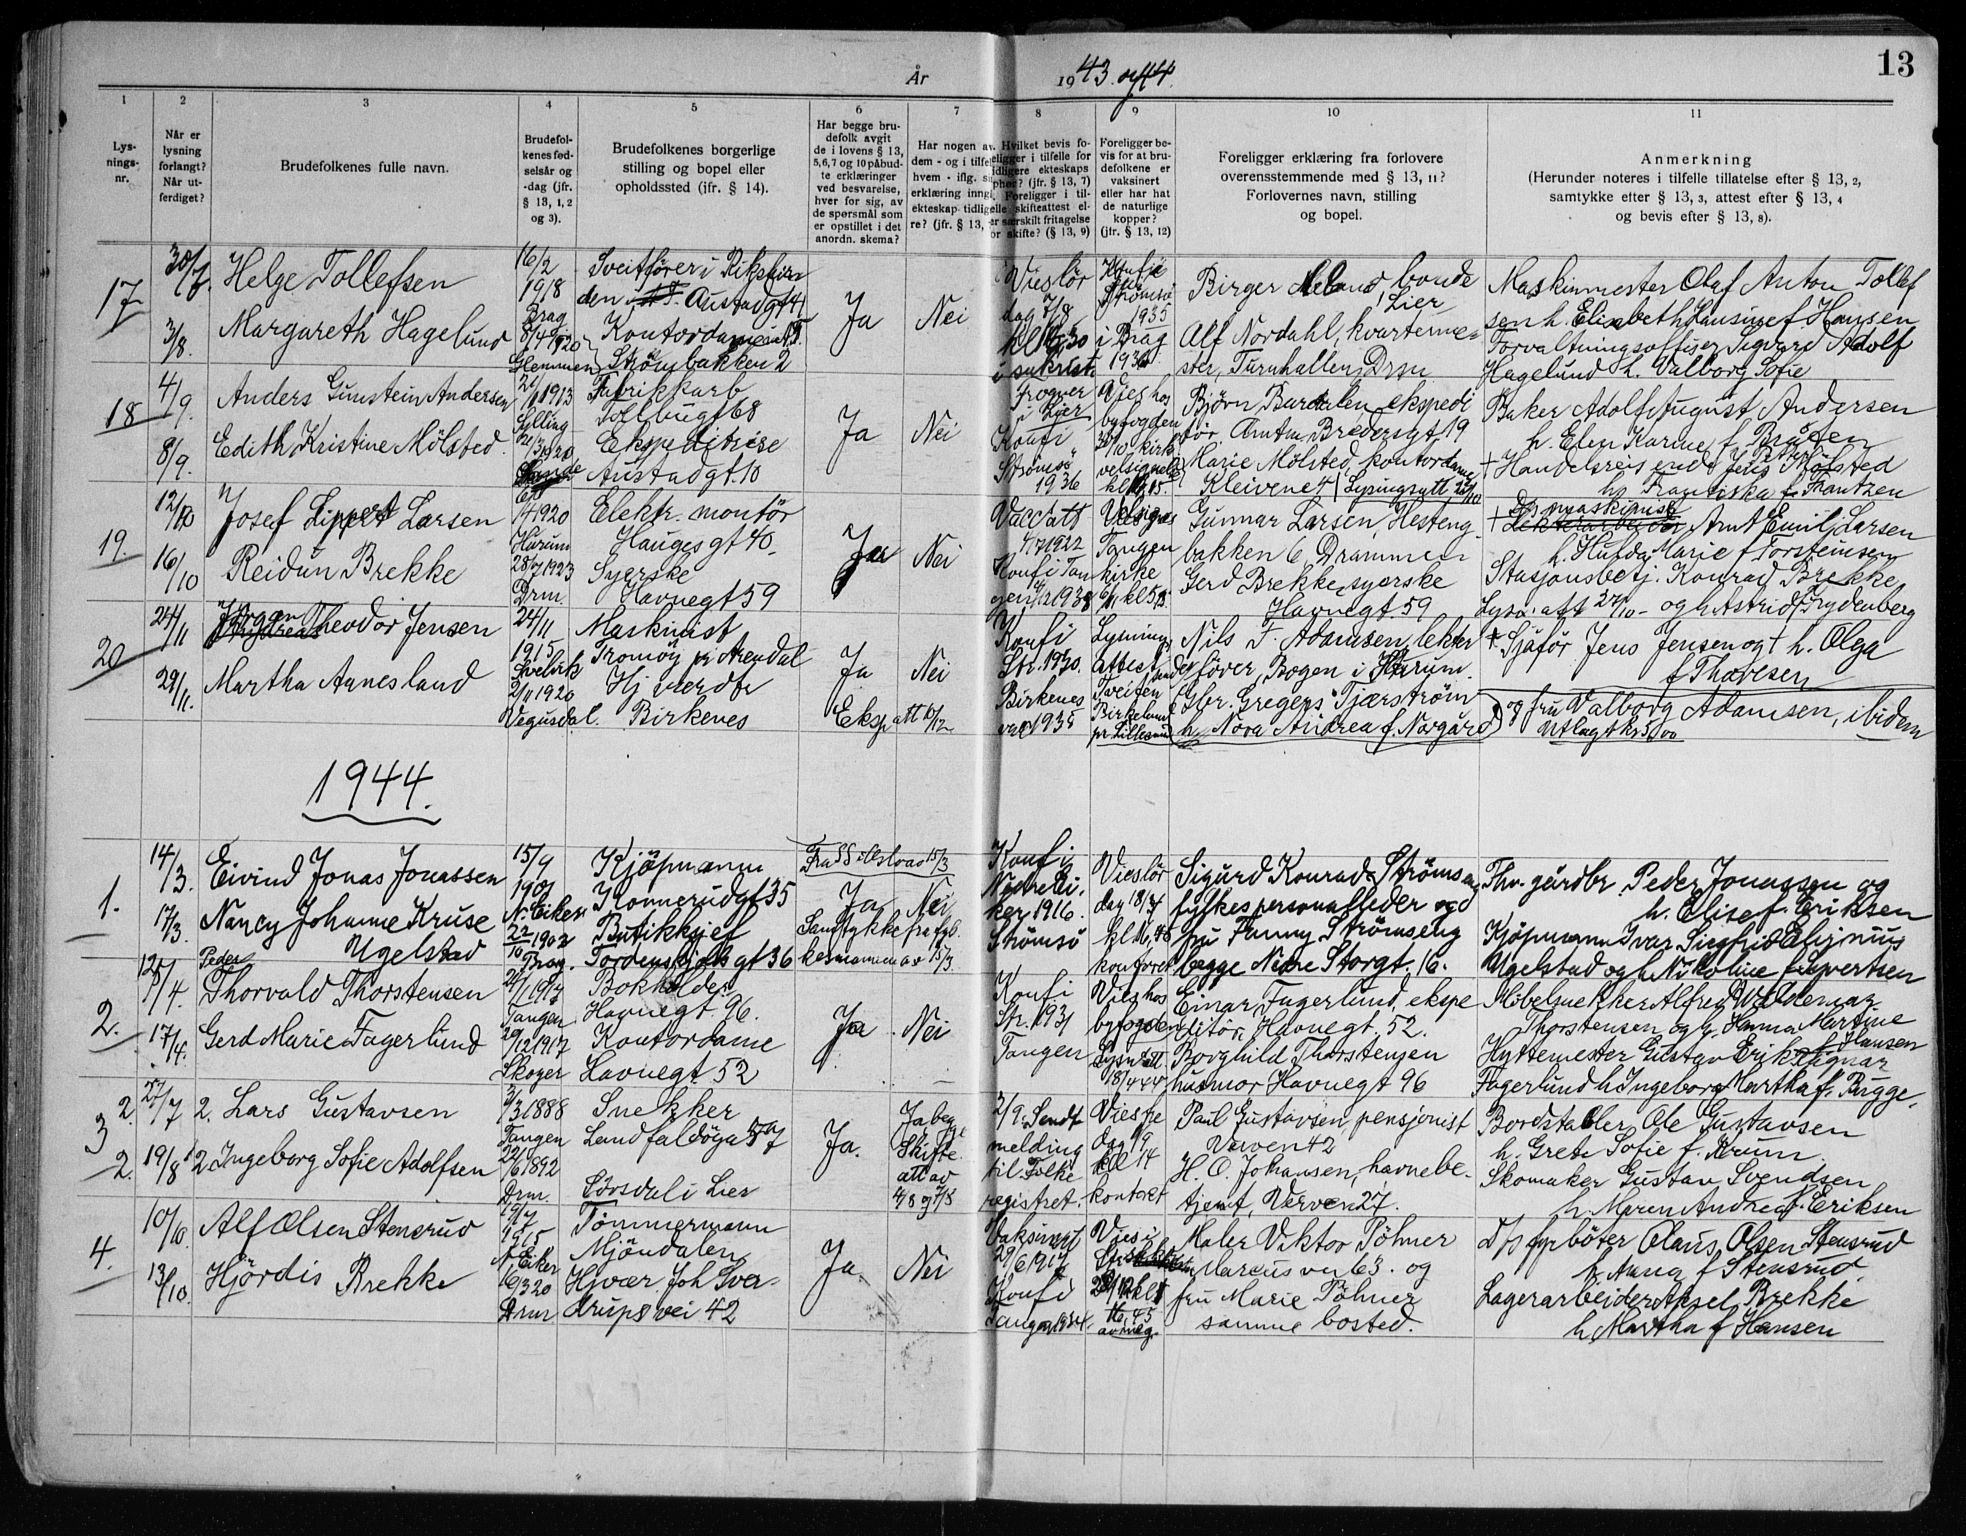 13
År 1943. og 44.
1 2 3 4 5 6 7 8 9 10 11
Lys-
nings-
nr.
Når er
lysning
forlangt?
Når ut-
ferdiget?
Brudefolkenes fulle navn.
Brudefol-
kenes fød-
selsår og
-dag (jfr.
§ 13, 1, 2
og 3).
Brudefolkenes borgerlige
stilling og bopel eller
opholdssted (jfr. § 14).
Har begge bru-
defolk avgit
de i lovens § 13,
5, 6, 7 og 10 påbud-
te erklæringer
ved besvarelse,
hver for sig, av
de spørsmål som
er opstillet i det
anordn. skema?
Har nogen av
dem - og i tilfelle
hvem - iflg.
erklæring inng.
ekteskap tidlige-
re? (jfr. § 13,
Hvilket bevis fo-
religger i tilfelle for
tidligere ekteskaps
ophør? (jfr. § 13, 7)
Foreligger i til-
felle skifteattest el-
ler særskilt fritagelse
for skifte? (§ 13, 9)
Foreligger be-
vis for at bru-
defolkene er
vaksinert
eller har hat
de naturlige
kopper?
(jfr. § 13, 12)
Foreligger erklæring fra forlovere
overensstemmende med § 13, 11?
Forlovernes navn, stilling
og bopel.
Anmerkning
(Herunder noteres i tilfelle tillatelse efter § 13, 2,
samtykke efter § 13, 3, attest efter § 13, 4
og bevis efter § 13, 8).
17
30/7
3/8.
Helge Tollefsen
Margareth Hagelund
16/2
1918
Brag
8/4 1920
Glemmen
Sveitfører i Rikshir
den Austadgt 41
Kontordame
Strømbakken 2
Ja
Nei
Vieslör
dag 7/8
kl 16,30
i sakrist.
Konfi
Strømsö
1935
i Brag
1936
Birger Meland bonde
Lier
Alf Nordahl, kvarterme-
ster, Turnhallen, Drm
Maskinmester Olaf Anton Tollef
sen h. Elisabeth Hansine f. Hansen
Forvaltningsoffiser Sigvard Adolf
Hagelund h. Valborg Sofie
18
4/9.
8/9.
Anders Gunstein Andersen
Edith Kristine Mölsted.
1913
Sylling
12/3 1920
Sande
Fabrikkarb
Tollbugt 68
Ekspeditrise
Austadgt. 10
Ja
Nei
Frogner
i Lier
Konfi
Strömsö
1936
Vies hos
byfogden
30/10 kirk
velsignelse
kl 15.
Bjørn Bardalen ekspedi
tör. Amtm. Bredersgt, 19
Marie Mölsted, kontordame
Kleivene 4 Lysingsatt 23/10
Baker Adolf August Andersen
h. Elen Karine f. Bråten
† Handelsreisende Jens Mölsted
h. Franciska f. Frantzen
19.
12/10
16/10
Josef Lippert Larsen
Reidun Brekke
1/4 1920
Hurum
28/7 1923
Drm.
Elektr. montör
Hauges gt 40
Syerske
Havnegt 59
Ja
Nei
Vacc att
4/7 1922
Konfi Tan
gen 1938
Velsignes
Tangen
kirke
6/11 kl 5,15
Gunnar Larsen, Hesteng
bakken 6 Drammen
Gerd Brekke, syerske
Havnegt. 59
Ds maskinist
† Arnt Emil Larsen
h. Hulda Marie f Torstensen
Stasjonsbetj. Konrad Brekke
Lysn. att 27/10 - og h Astrid f Frydenberg
20
24/11
29/11.
Jörgen Theodor Jensen
Martha Aanesland
24/11
1915
Svelvik
2/11 1920
Vegusdal.
Maskinist
Tromöy pr Arendal
Hj. verdtr
Birkenes
Ja
Eksp
Nei
att 6/12
Konfi
Str. 1930.
Birkenes
vac 1935
Lysnings
attest sendt
Tveiten
Birkeland
pr Lillesand
Nils F. Adamsen, lekter
förer, Bogen i Hurum.
Gbr. Gregers Tjærström
h. Nora Andrea f. Norgård
† Sjåför Jens Jensen og † h. Olga
f Thoresen
og fru Valborg Adamsen, ibidem
Utlagt kr 5,00
1944.
1.
14/3.
17/3.
Eivind Jonas Jonassen
Nancy Johanne Kruse
Ugelstad
15/9
1901
N. Eiker
22/10 1902
Brag.
Kjöpmann
Konnerudgt 35
Butikksjef
Tordenskjolds gt 36
Fra SS i Oslo av 15/3
Ja
Nei
Samtykke fra fyl-
kesmannen av 15/3.
Konfi
Nedre Ei-
ker 1916.
Strömsö
Vieslör
dag 18/3
kl 16,45
kontoret
Sigurd Konrad Strömseng
fylkespersonalleder og
fru Fanny Strömseng
begge Nedre Storgt. 16.
Fhv. gårdbr. Peder Jonassen og
h. Elise f. Eriksen
Kjöpmann Ivar Sigfrid Elignius
Ugelstad og h. Nikoline f. Syvertsen
2.
12/4.
17/4.
Peder
Thorvald Thorstensen
Gerd Marie Fagerlund
Tangen
29/12 1917
Skoger
Bokholder
Havnegt 96.
Kontordame
Havnegt 52
Ja
Nei
Konfi
Str. 1931
Tangen
Vils hos
byfogden
Lysn att
18/4 44
Einar Fagerlund, ekspe
ditör, Havnegt. 52.
Borghild Thorstensen
husmor Havnegt 96
Möbelsnekker Alfred Valdemar
Thorstensen og h. Hanna Martine
f. Hansen
Hyttemester Gustav Erik Ragnar
Fagerlund h Ingeborg Martha f. Bugge.
3
2. 27/7
2. 19/8
2. Lars Gustavsen
2 Ingeborg Sofie Adolfsen
3/3 1888
Tangen
22/6 1892
Drm.
Snekker
Landfaldöya 57
Sörsdal i Lier
Ja.
Ja, beg
ge
Skifte
att av
4/8 og 7/8
2/9. Sendt
melding
til Folke
registret.
Vies
dag 1/9
kl 14
kontoret
Paul Gustavsen pensjonist
Verven 42
H. O. Johansen, havnebe-
tjent, Verven 27.
Bordstabler Ole Gustavsen
h. Grete Sofie f. Krum.
Skomaker Gustav Svendsen
h. Maren Andrea f. Eriksen
4.
10/10
13/10.
Alf Olsen Stensrud
Hjördis Brekke
19/7
1915
N. Eiker
16/3 20
Drm
Tömmermann
Mjöndalen
Hjvær. Joh Sver-
drups vei 42
Ja.
Nei
Vaksinert
29/6 1917
Konfi
Tangen 1934.
Vies i
kl
16,45
Maler Viktor Pöhner
Marcus vei 63. og
fru Marie Pöhner
samme bosted.
D/s fyrböter Olaus Olsen Stensrud
h. Anna f Stensrud.
Lagerarbeider Aksel Brekke
h. Martha f Hansen